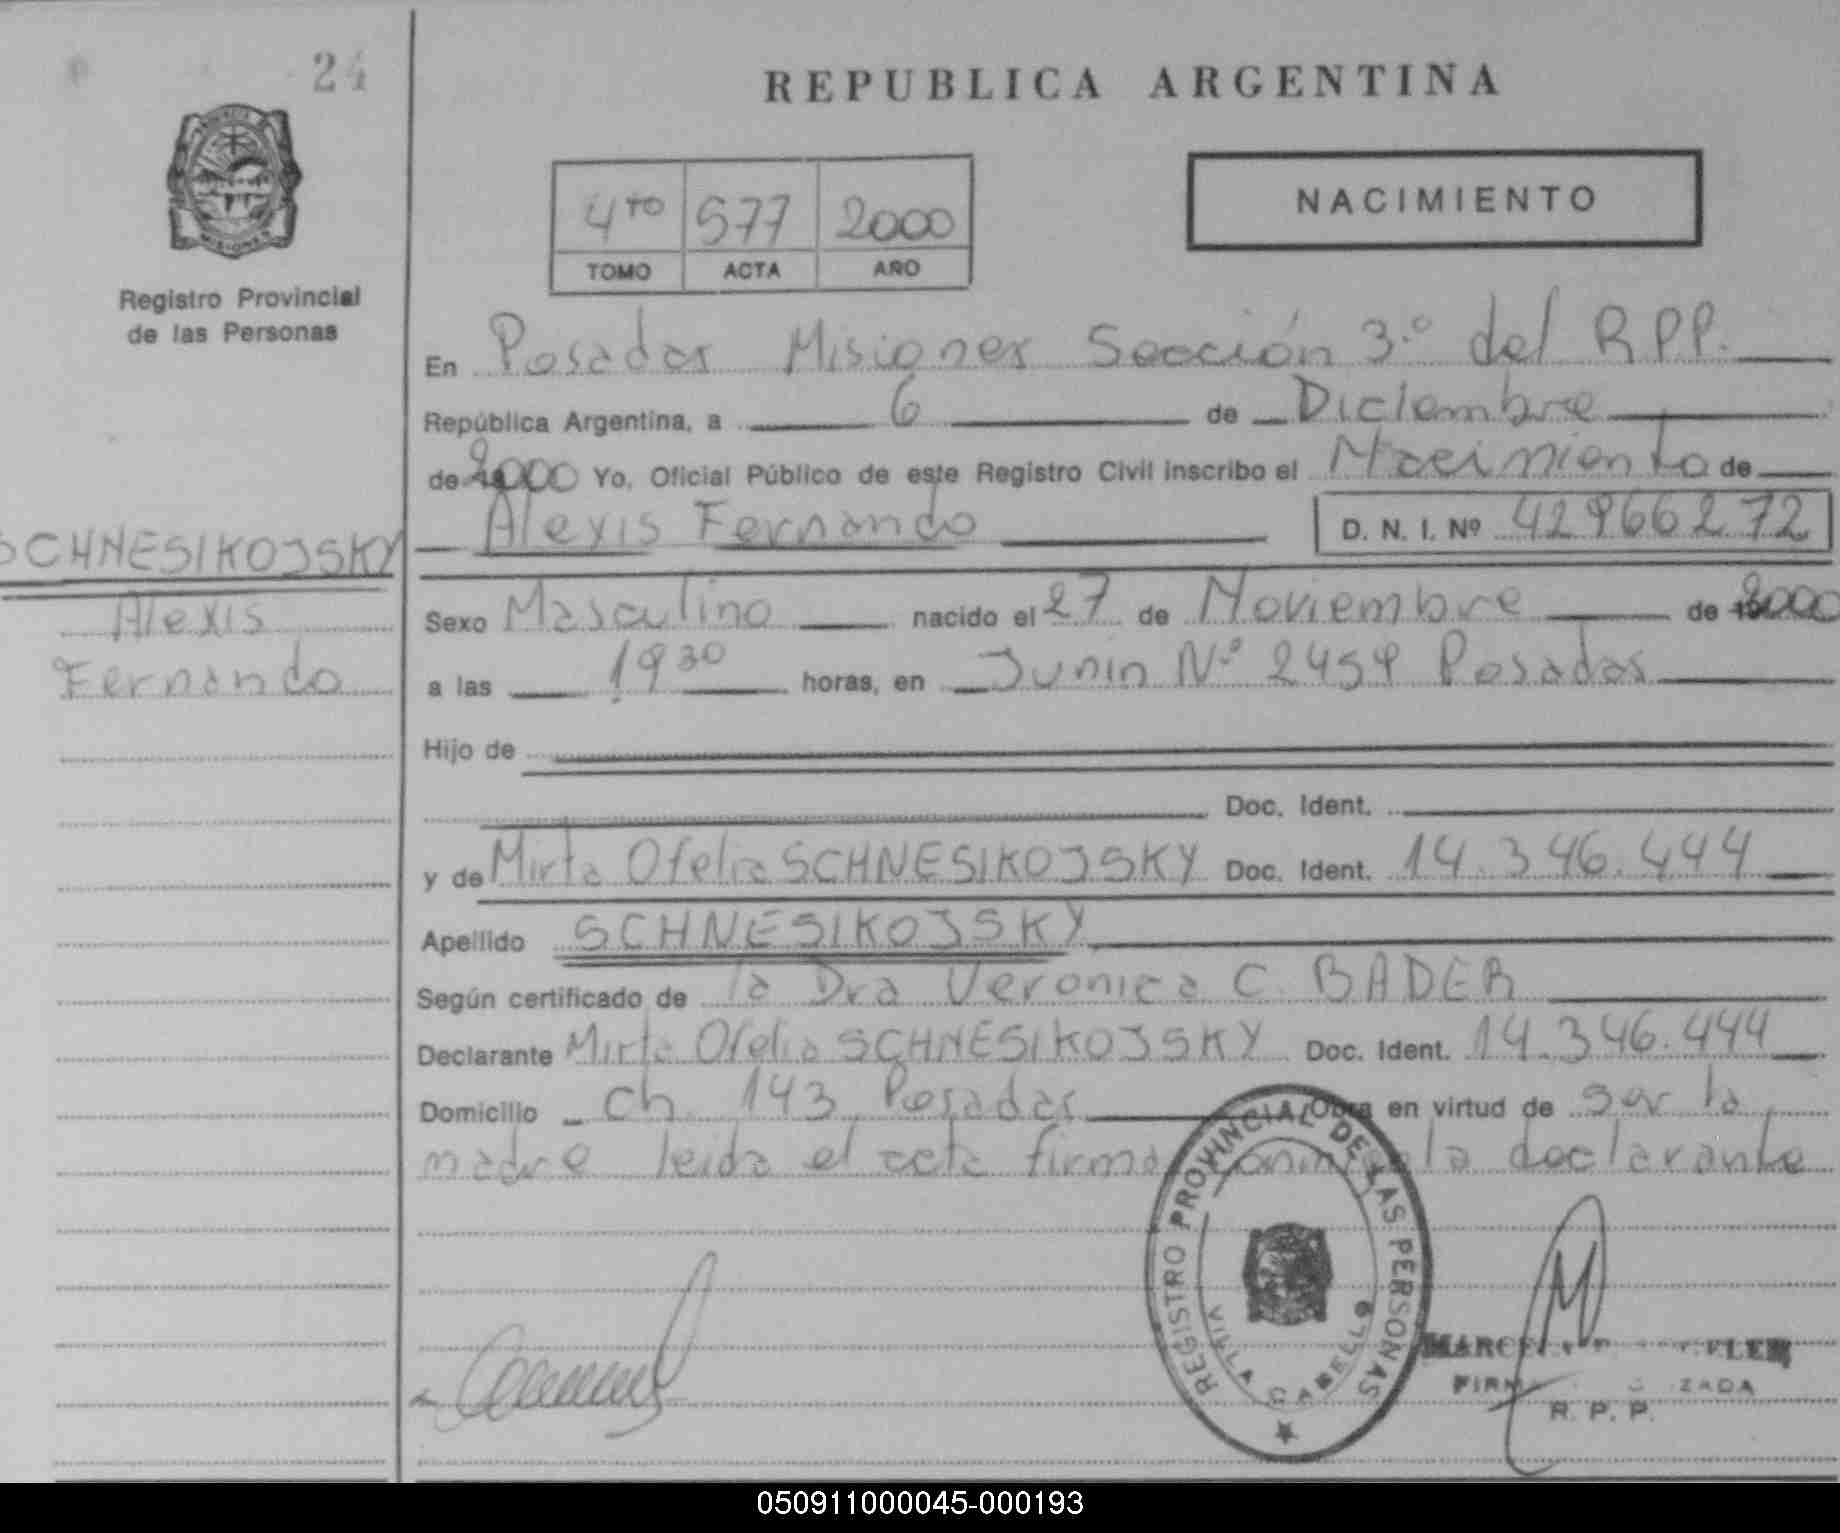 24
REPUBLICA ARGENTINA
MISIONES
Registro Provincial
de las Personas
4to 577 2000
TOMO ACTA AÑO
NACIMIENTO
En Posadas Misiones Sección 3º del R.P.P.
República Argentina, a 6 de Diciembre
de 2000 Yo, Oficial Público de este Registro Civil inscribo el Nacimiento de
Alexis Fernando D. N. I. Nº 42966272
SCHNESIKOJSKY
Alexis
Fernando
Sexo Masculino nacido el 27 de Noviembre de 2000
a las 19 30 horas, en Junín Nº 2459 Posadas
Hijo de
Doc. Ident.
y de Mirta Ofelia SCHNESIKOJSKY Doc. Ident. 14.346.444
Apellido SCHNESIKOJSKY
Según certificado de la Dra Veronica C. BADER
Declarante Mirta Ofelia SCHNESIKOJSKY Doc. Ident. 14.346.444
Domicilio ch. 143 Posadas Obra en virtud de ser la
madre leida el acta firma conmigo la declarante
REGISTRO PROVINCIAL DE LAS PERSONAS
VILLA CABELLO
R. P. P.
050911000045-000193